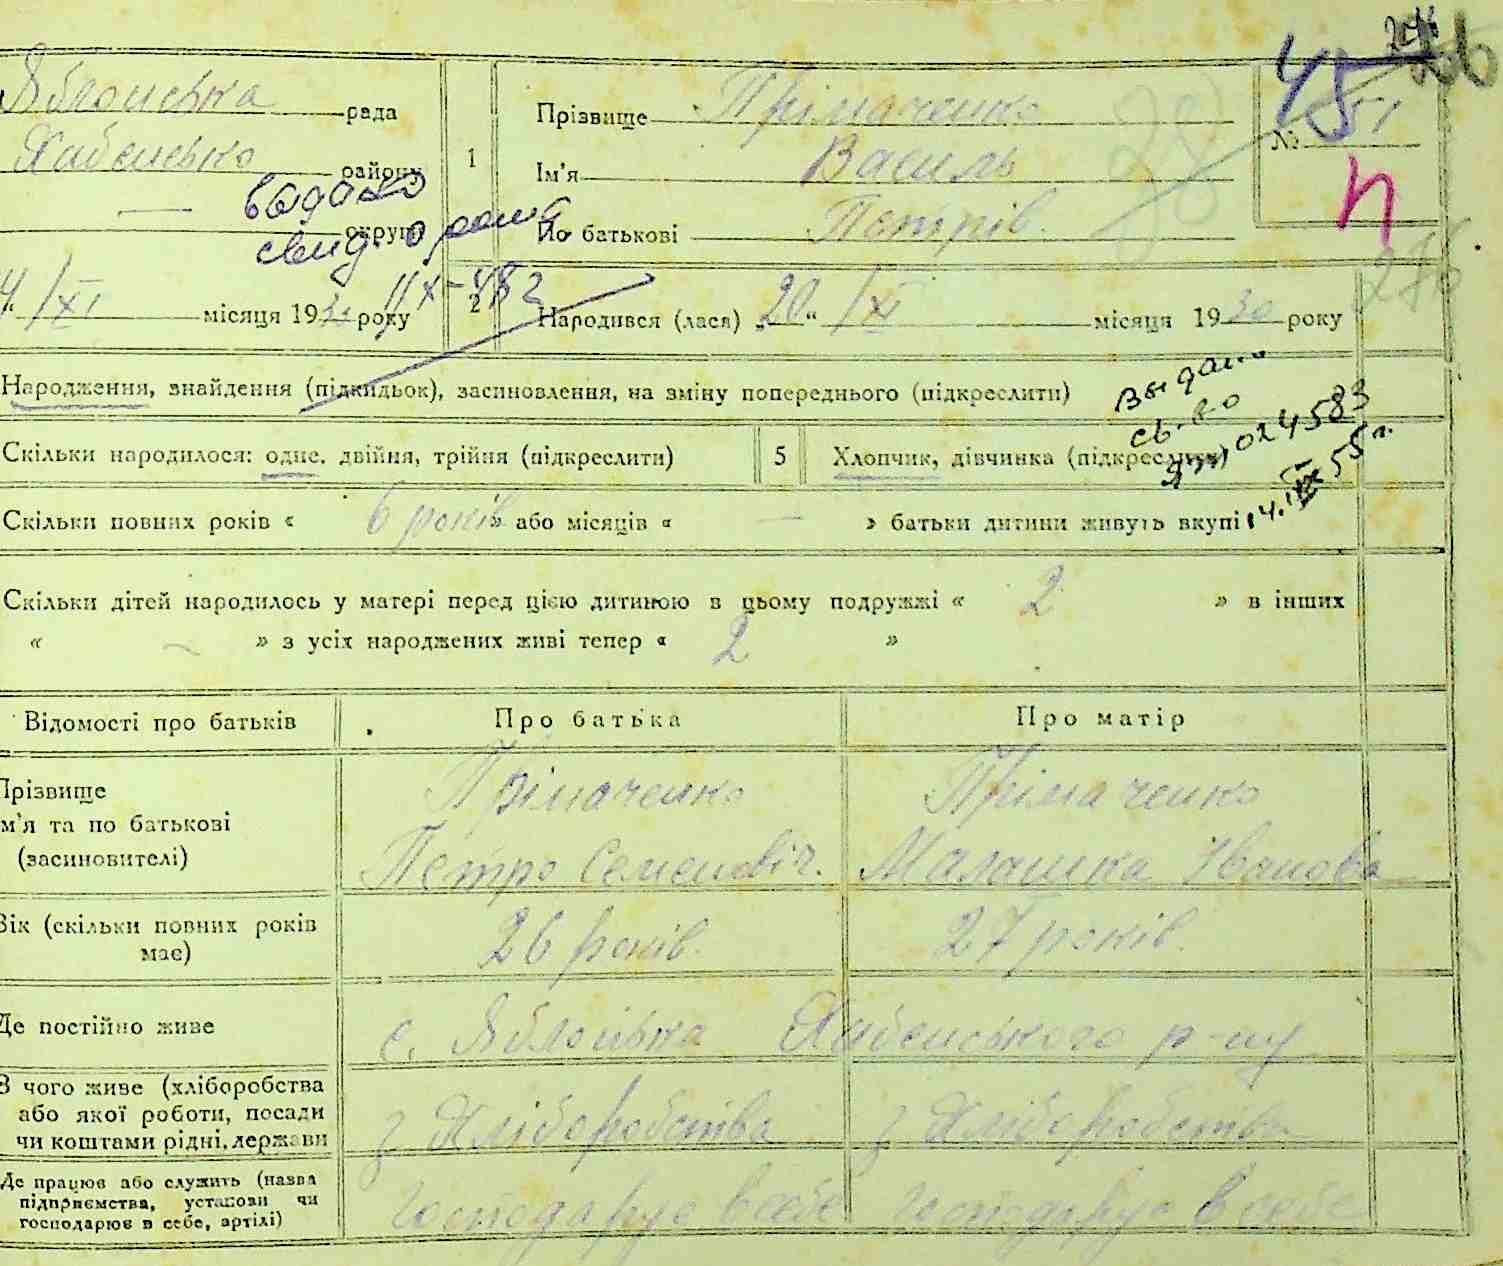 45
51
Яблонська рада
Хабенсько району
— округи
видано
свид. о рожд
4/XI місяця 1930 року
1
Прізвище Прімаченко
Ім'я Василь
По батькові Петрів.
№
п
286
2
Народився (лася) „20“ /XI місяця 1930 року
Народження, знайдення (підкидьок), засиновлення, на зміну попереднього (підкреслити)
Скільки народилося: одне, двійня, трійня (підкреслити)
5
Хлопчик, дівчинка (підкреслити)
Выдано
св-во
024583
14.IX 55 г.
Скільки повних років « 6 років » або місяців « — » батьки дитини живуть вкупі
Скільки дітей народилось у матері перед цією дитиною в цьому подружжі « 2 » в інших
« — » з усіх народжених живі тепер « 2 »
Відомості про батьків
Про батька
Про матір
Прізвище
ім'я та по батькові
(засиновителі)
Прімаченко
Петро Семеновіч.
Прімаченко
Малашка Іванова
Вік (скільки повних років
має)
26 років.
27 років.
Де постійно живе
с. Яблонька Хабенського р-ну
З чого живе (хліборобства
або якої роботи, посади
чи коштами рідні, держави
з Хліборобства
з Хліборобства
Де працює або служить (назва
підприємства, установи чи
господарює в себе, артілі)
Господарує в себе
Господарує в себе